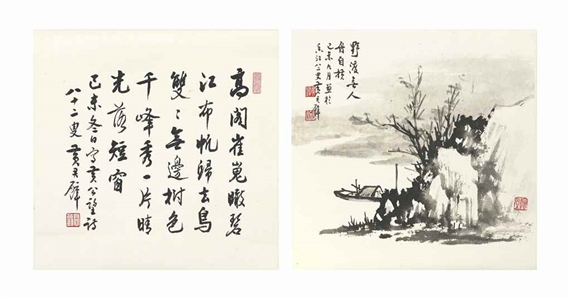 高閣崔嵬瞰碧
江布帆歸去鳥
雙〻無邊樹色
千峰秀一片晴
光落短窗
己未冬日寫黃公望詩
八十二叟黃君璧
野渡無人
舟自橫
己未九月畫於
香江 叟黃君璧